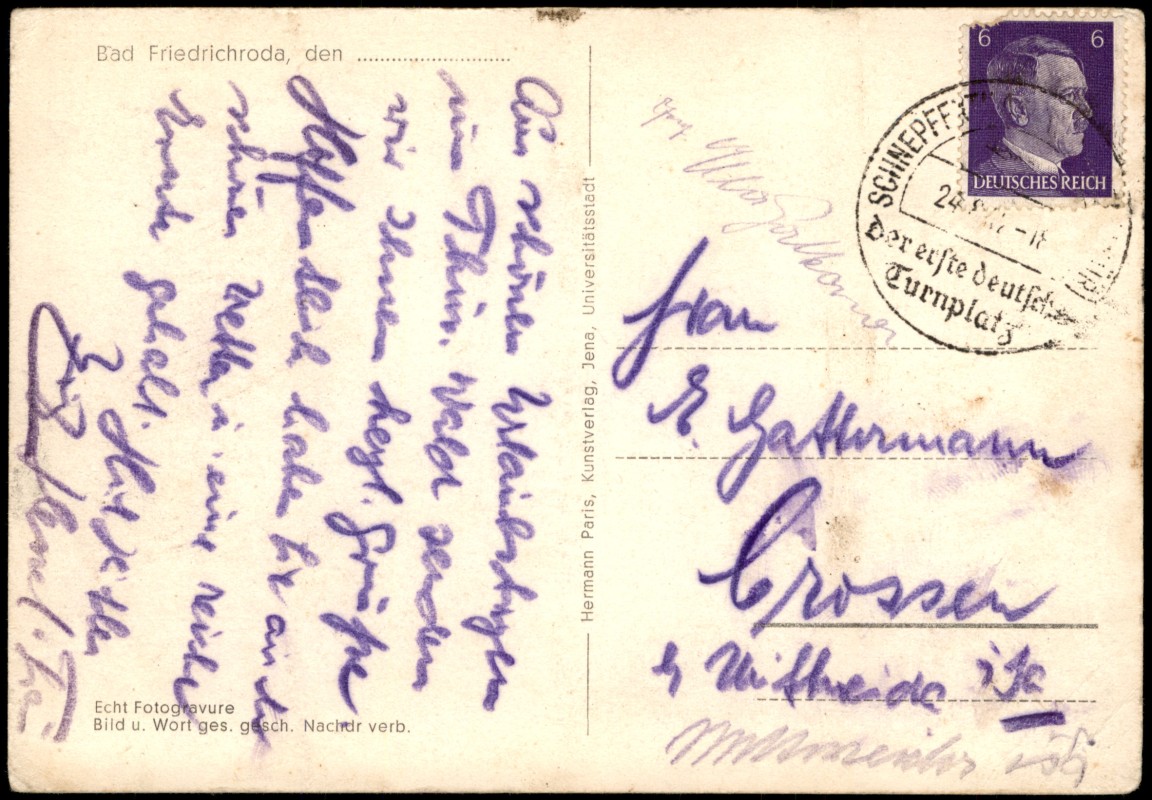 Bad Friedrichroda, den
Aus schönen Urlaubstagen
im Thür. Wald senden
wir Ihnen herzl. Grüße
Hoffentlich haben Sie auch
schönes Wetter u. eine reiche
Ernte gehabt.
Heil Hitler
Echt Fotogravure
Bild u. Wort ges. gesch. Nachdr verb.
Hermann Paris, Kunstverlag, Jena, Universitätsstadt
6 6
DEUTSCHES REICH
SCHNEPFF
24
Der erste deutsche
Turnplatz
Frau
Gattermann
Crossen
Mittweida i/Sa